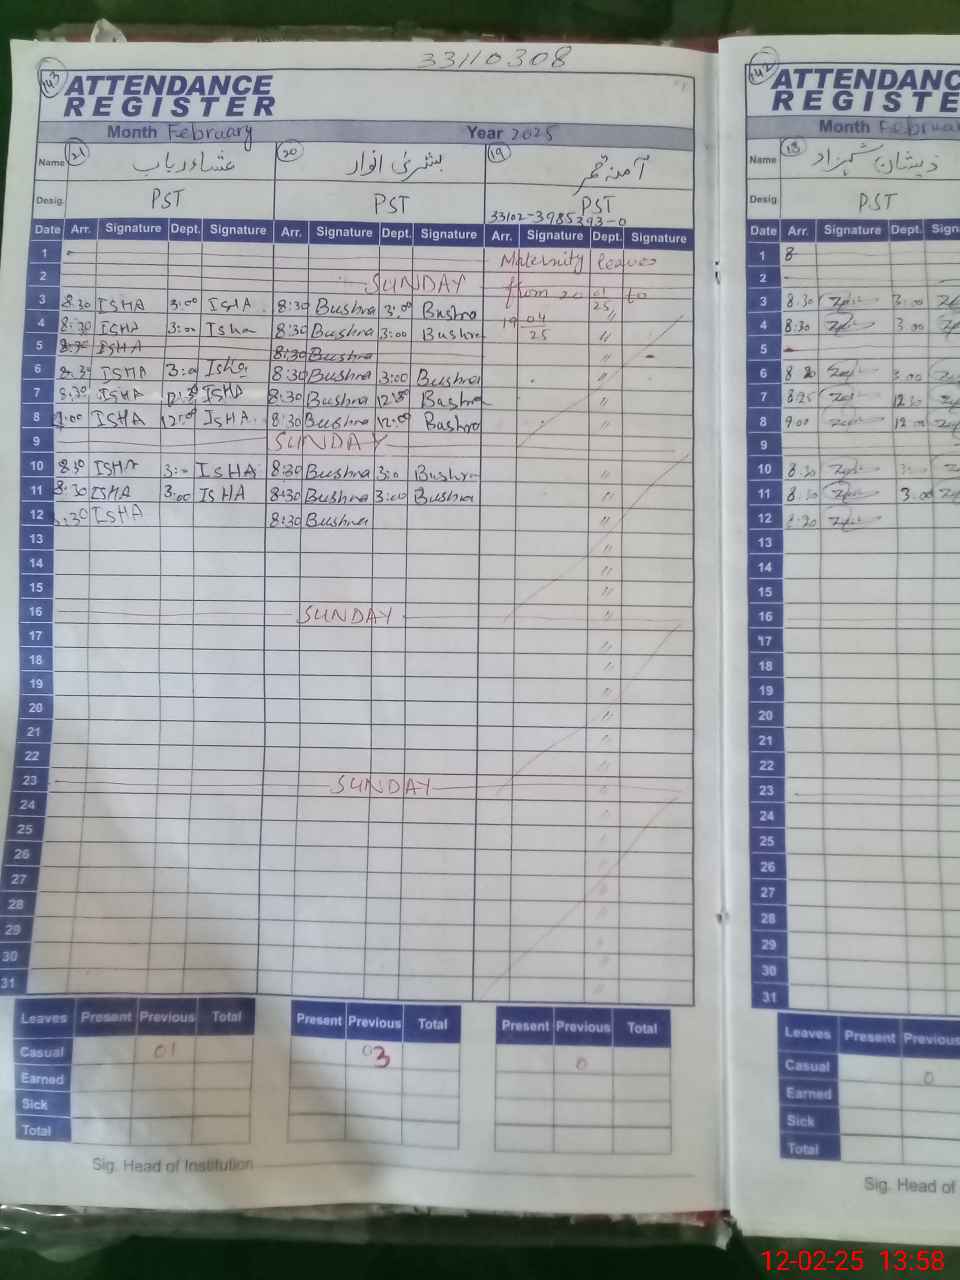 33110308
143
ATTENDANCE
REGISTER
Month February Year 2025
Name 21 عشاء رباب 20 بشریٰ انوار 19 آمنہ قمر
Desig. PST PST PST
33102-3985393-0
Date Arr. Signature Dept. Signature Arr. Signature Dept. Signature Arr. Signature Dept. Signature
1 Maternity leaves
2 SUNDAY from 20 01/25 to
3 8.30 ISHA 3:00 ISHA 8:30 Bushra 3:00 Bushra 〃
4 8:30 ISHA 3:00 Isha 8:30 Bushra 3:00 Bushra 19 04/25 〃
5 8:30 ISHA 8:30 Bushra 〃
6 8:30 ISHA 3:00 Isha 8:30 Bushra 3:00 Bushra 〃
7 8:30 ISHA 12:30 ISHA 8:30 Bushra 12:30 Bushra 〃
8 9:00 ISHA 12:00 ISHA 8:30 Bushra 12:00 Bushra 〃
9 SUNDAY
10 8:30 ISHA 3:00 ISHA 8:30 Bushra 3:0 Bushra 〃
11 8:30 ISHA 3:00 ISHA 8:30 Bushra 3:00 Bushra 〃
12 8:30 ISHA 8:30 Bushra 〃
13 〃
14 〃
15 〃
16 SUNDAY 〃
17 〃
18 〃
19 〃
20 〃
21 〃
22 〃
23 SUNDAY 〃
24 〃
25 〃
26 〃
27 〃
28 〃
29 〃
30 〃
31 〃
Leaves Present Previous Total Present Previous Total Present Previous Total
Casual 01 03 0
Earned
Sick
Total
Sig. Head of Institution
142
ATTENDANC
REGISTE
Month Februar
Name 18 ذیشان شہزاد
Desig. PST
Date Arr. Signature Dept. Sign
1 8
2
3 8.30 3:00
4 8:30 3.00
5
6 8 30 3.00
7 8:25 12 30
8 9.00 12.00
9
10 8:30 3:00
11 8:30 3.00
12 8:30
13
14
15
16
17
18
19
20
21
22
23
24
25
26
27
28
29
30
31
Leaves Present Previous
Casual 0
Earned
Sick
Total
Sig. Head of
12-02-25 13:58